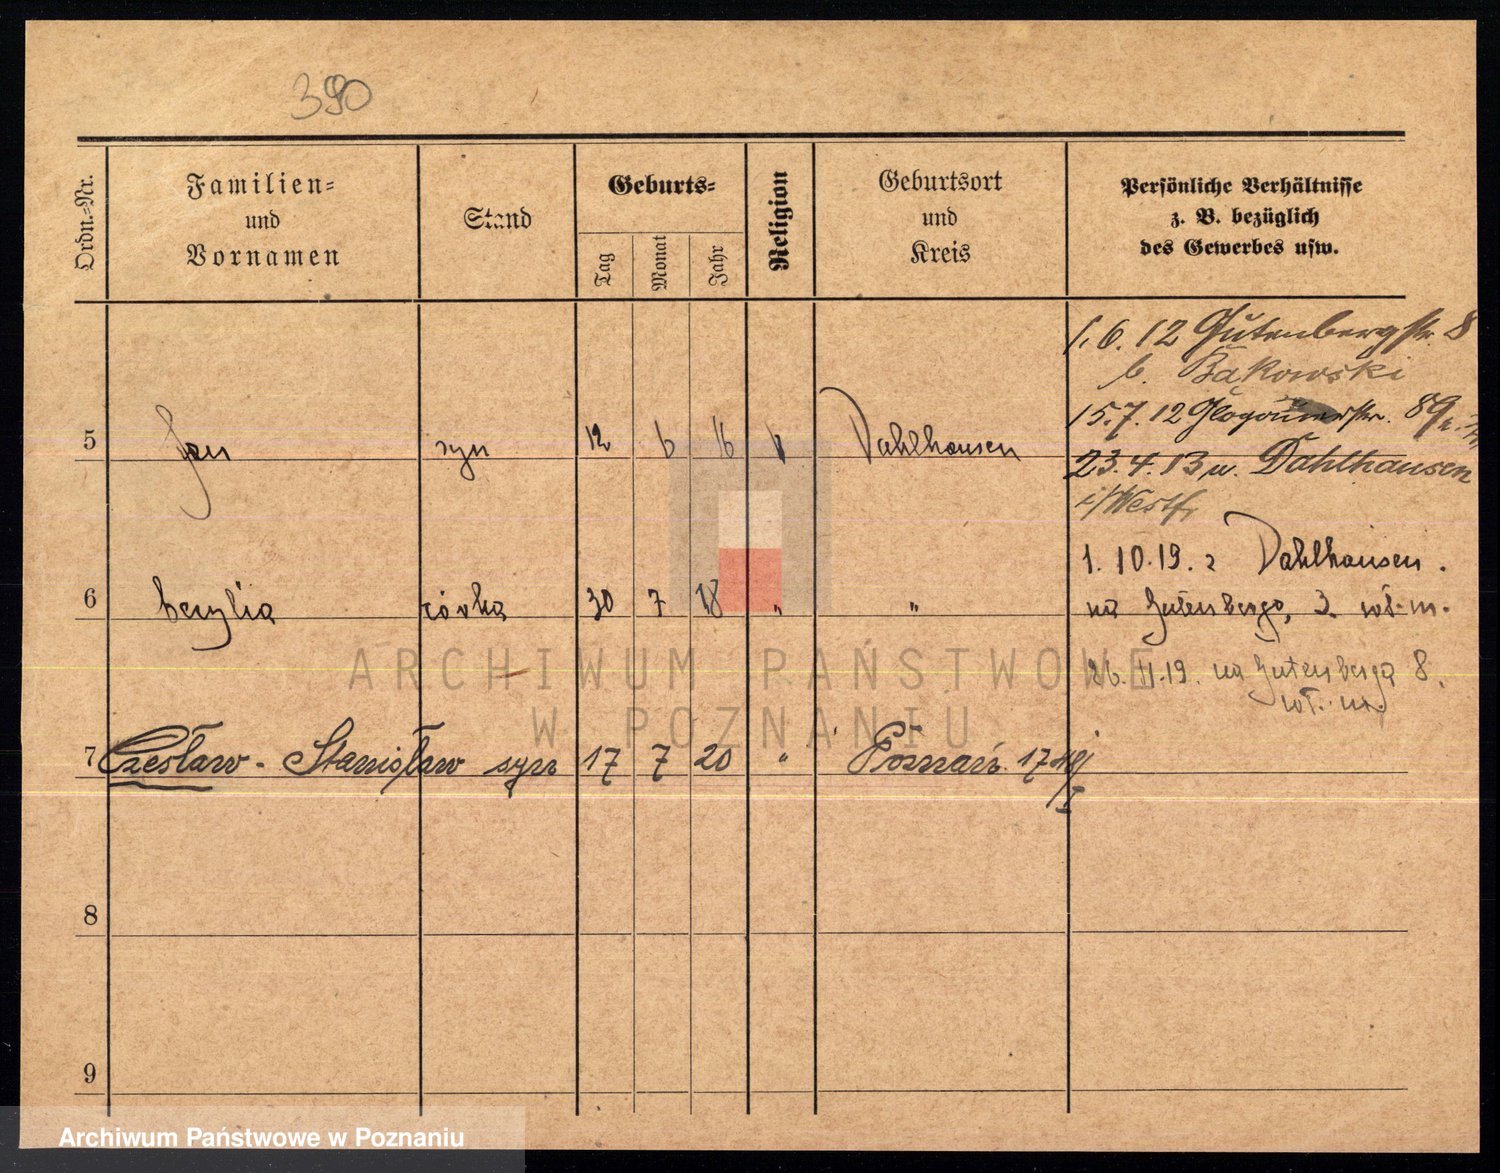 390
Ordn.-Nr.
Familien-
und
Vornamen
Stand
Geburts-
Tag
Monat
Jahr
Religion
Geburtsort
und
Kreis
Persönliche Verhältnisse
z. B. bezüglich
des Gewerbes usw.
1.6.12 Gutenbergstr. 8
b. Bąkowski
15.7.12 Glogauerstr. 89
5 Jan syn 12 6 16 Dahlhausen
23.4.13 n. Dahlhausen
i/Westf.
1.10.19. z Dahlhausen.
6 Cecylia córka 30 7 18 " "
na Gutenberga, 3. rot. m.
26.11.19. na Gutenberga 8.
rot. m.
7 Czesław - Stanisław syn 17 7 20 " Poznań. 17
I
8
9
ARCHIWUM PAŃSTWOWE
W POZNANIU
Archiwum Państwowe w Poznaniu